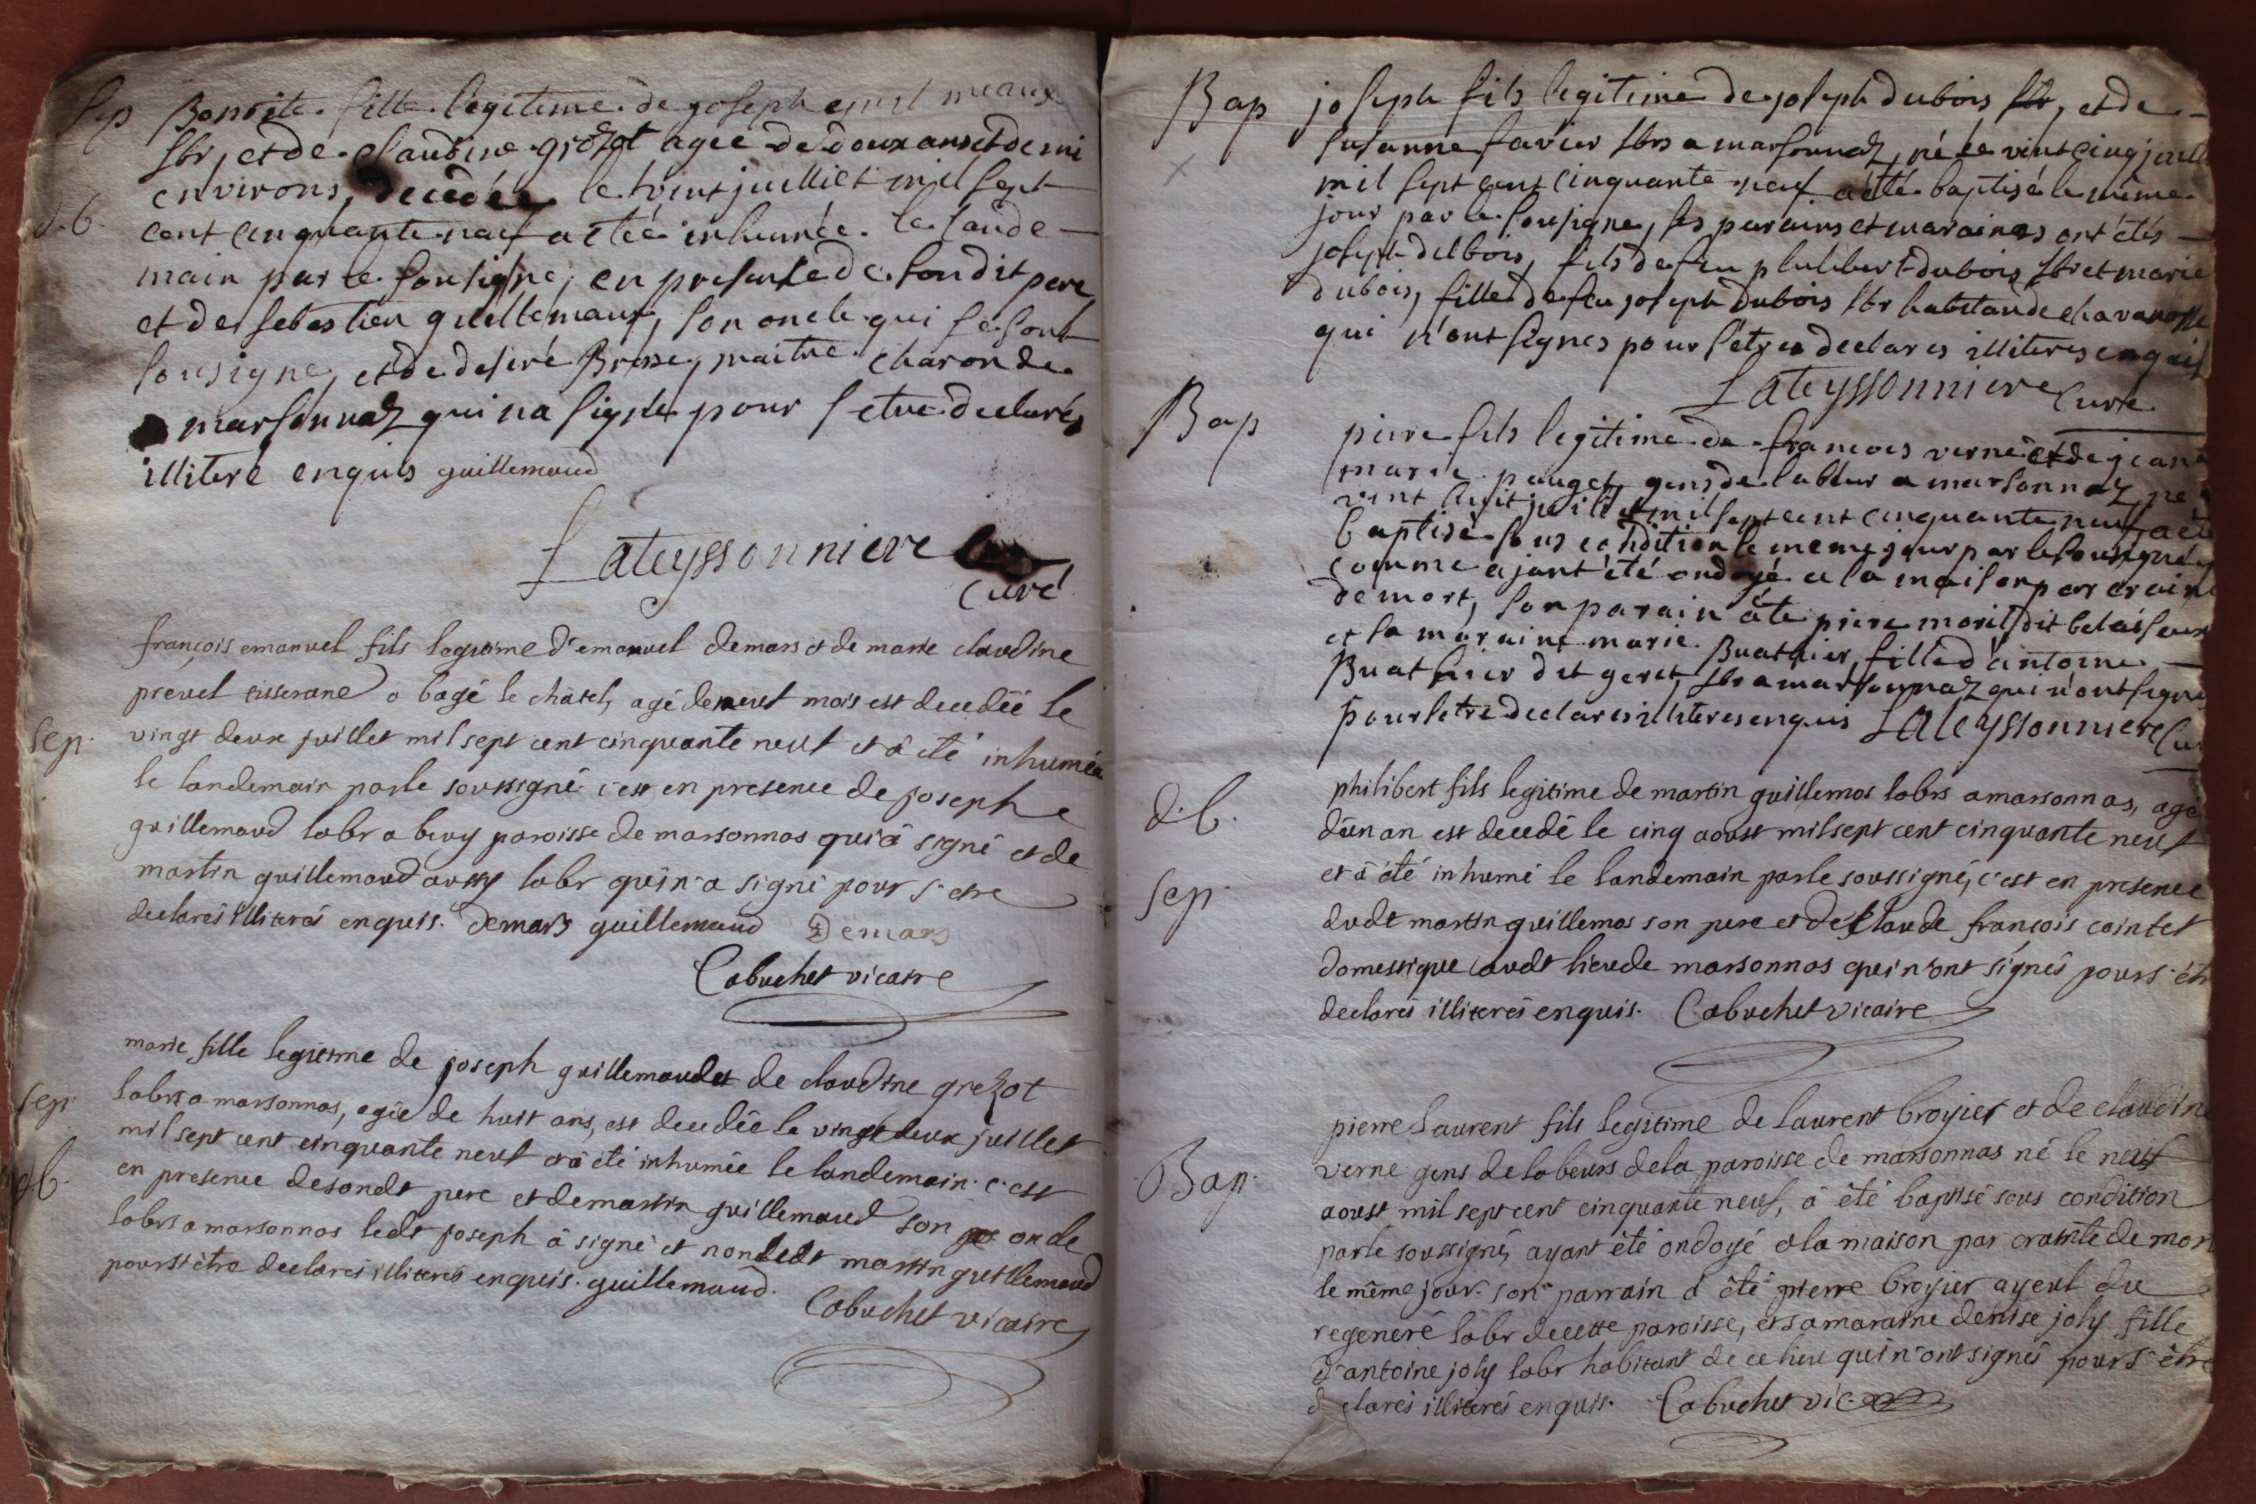 Sep
Benoite fille legitime de joseph
lbr, et de claudine grozot agee de deux ans et demi
environs, decedée le vint julliet mil sept
d.b.
cent cinquante neuf a etéé inhumée le lande-
main par le sousigne, en presense de son dit pere,
et de sebastien guillemaux, son oncle qui se sont
sousigne, et de desiré Brosse, maitre charon de
marsonnaz qui na signe pour setre declarés
illiteré enquis guillemaud
Lateyssonniere
curé
françois emanuel fils legitime d'emanuel demars et de marie claudine
prevel tisserand a bagé le chatel, agé de neuf mois est decedéé le
Sep.
vingt deux juillet mil sept cent cinquante neuf et à été inhuméé
le landemain par le soussigné c'est en presence de joseph
guillemaud labr a beuy paroisse de marsonnas qui à signé et de
martin guillemaud aussy labr qui n'a signé pour s'etre
declarés illiterés enquis. Demars guillemaud Demars
Cabuchet vicaire
marie fille legitime de joseph guillemaud et de claudine grezot
Sep.
labrs a marsonnas, agée de huit ans, est decedée le vingt deux juillet
mil sept cent cinquante neuf et à été inhumée le landemain. c'est
d.b.
en presence de sondt pere et de martin guillemaud son oncle
labrs a marsonnas ledt joseph à signé et non ledt martin guillemaud
pour s'être declarés illiterés enquis. guillemaud.
Cabuchet vicaire
Bap
joseph fils legitime de joseph dubois lbr, et de
susanne favier lbrs a marsonnaz, né le vint cinq juill
mil sept cent cinquante neuf a été baptisé le même
jour par le sousigne, ses parains et maraines ont étés
joseph delbois, fils de feu philibert dubois lbr et marie
dubois, fille de feu joseph dubois lbr habitan de chavanosse
qui n'ont signes pour s'etres declares illiteres enquis
Lateyssonniere Curé
Bap
piere fils legitime de francois verne et de jeanne
marie pauget, gens de labeur a marsonnaz, né
vint huit juillet mil sept cent cinquante neuf a été
baptisé sous condition le meme jour par le sousigné,
comme ajant été ondoyé a la maison par crainte
de mort, son parain a été piere moril dit belaiseur
et la maraine marie Buathier, fille d'antoine
Buathier dit geret, lbr a marsonnaz qui n'ont signe
pour setre declares illiteres enquis Lateyssonniere Cur
d.b.
philibert fils legitime de martin guillemos labrs a marsonnas, agé
d'un an est decedé le cinq aoust mil sept cent cinquante neuf
Sep.
et à été inhumé le landemain par le soussigné, c'est en presence
dudt martin guillemos son pere et de claude françois cointet
domestique audt lieu de marsonnas qui n'ont signés pour s'êt
declarés illiterés enquis. Cabuchet vicaire
pierre laurent fils legitime de laurent broyier et de claudine
Bap.
verne gens de labeurs de la paroisse de marsonnas né le neuf
aoust mil sept cent cinquante neuf, à été baptisé sous condition
par le soussigné, ayant été ondoyé a la maison par crainte de mor
le même jour. son parrain à été pierre broyier ayeul du
regeneré labr de cette paroisse, et sa maraine denise joly fille
d'antoine joly labr habitant de ce lieu qui n'ont signés pour s'être
declarés illiterés enquis. Cabuchet vic.